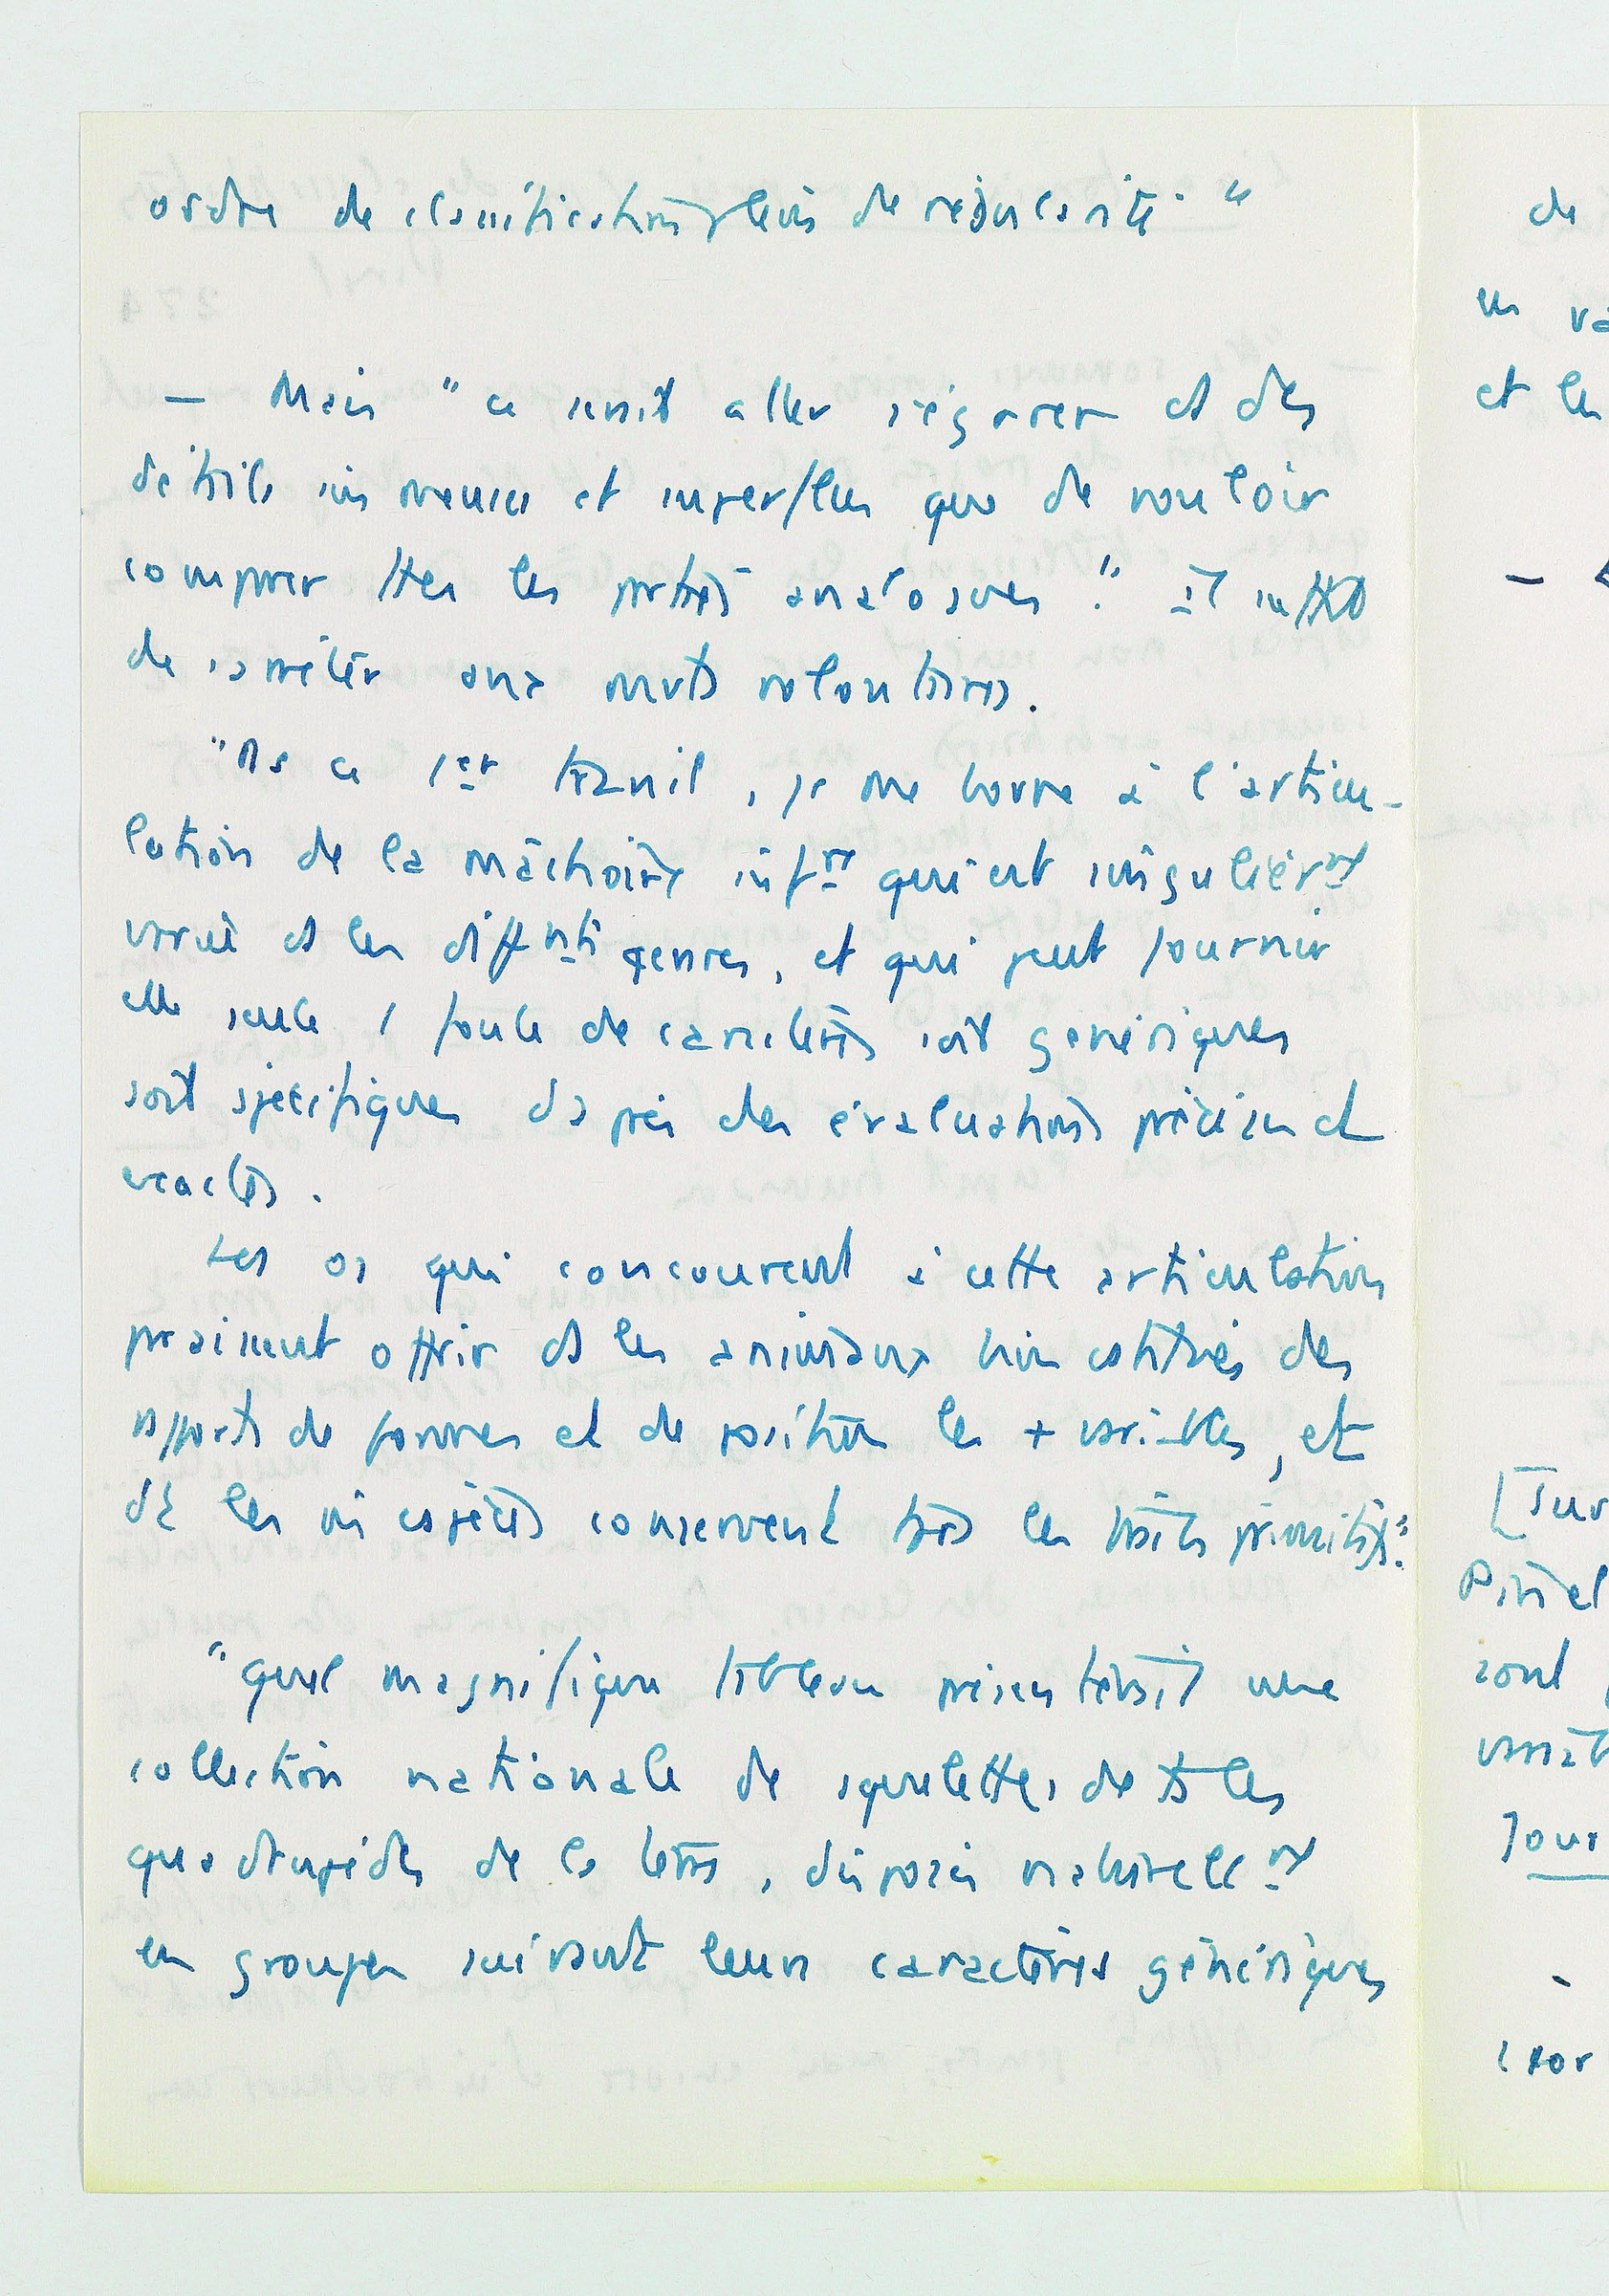 ordre de classification pleins de régularité. "
— Mais " ce serait aller s'égarer ds des
détails immenses et superflus que de vouloir
comparer ttes les parties analogues." Il suffit
de s'arrêter aux mvts volontaires.
"Ds ce 1er travail, je me borne à l'articu-
lation de la mâchoire infre qui est singulièrnt
variée ds les diffnts genres, et qui peut fournir
elle seule 1 foule de caractères soit génériques
soit spécifiques d'après des évaluations précises et
exactes.
Les os qui concourent à cette articulation
puissent offrir ds les animaux
de formes et de position les + variables, et
ds les mêmes espèces conservent ts les traits primitifs."
"Quel magnifique tableau présenterait une
collection nationale de squelettes de ts les
quadrupèdes de la terre, disposés naturellnt
en groupes suivant leurs caractères génériques
de
en va
et les
—
[Sur
Pinel
sont
Jour
-